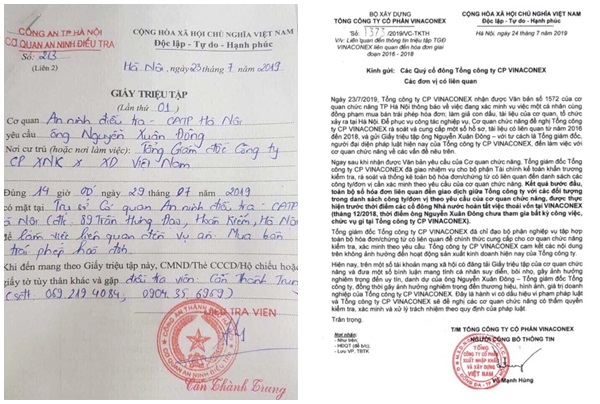 CÔNG AN TP HÀ NỘI
CƠ QUAN AN NINH ĐIỀU TRA
Số: 213
(Liên 2)
CỘNG HÒA XÃ HỘI CHỦ NGHĨA VIỆT NAM
Độc lập - Tự do - Hạnh phúc
Hà Nội, ngày 23 tháng 7 năm 2019
GIẤY TRIỆU TẬP
(Lần thứ 01)
Cơ quan An ninh điều tra - CATP Hà Nội
yêu cầu ông Nguyễn Xuân Đông
Nơi cư trú (hoặc nơi làm việc): Tổng Giám đốc Công ty
CP XNK x XD Việt Nam
Đúng 14 giờ 00 ngày 29 tháng 07 năm 2019
có mặt tại Trụ sở Cơ quan An ninh điều tra - CATP
Hà Nội 89 Trần Hưng Đạo, Hoàn Kiếm, Hà Nội
để làm việc liên quan đến vụ án: Mua bán
trái phép hoá đơn
Khi đến mang theo Giấy triệu tập này, CMND/Thẻ CCCD/Hộ chiếu hoặc
giấy tờ tùy thân khác và gặp điều tra viên: Cấn Thành Trung
ĐIỀU TRA VIÊN
CÔNG AN THÀNH PHỐ HÀ NỘI
CƠ QUAN AN NINH ĐIỀU TRA
Cấn Thành Trung
BỘ XÂY DỰNG
TỔNG CÔNG TY CỔ PHẦN VINACONEX
Số: 1373/2019/VC-TKTH
V/v: Liên quan đến thông tin triệu tập TGĐ
VINACONEX liên quan đến hóa đơn giai
đoạn 2016 - 2018
CỘNG HÒA XÃ HỘI CHỦ NGHĨA VIỆT NAM
Độc lập - Tự do - Hạnh phúc
Hà Nội, ngày 24 tháng 7 năm 2019
Kính gửi: Các Quý cổ đông Tổng công ty CP VINACONEX
Các đơn vị có liên quan
Ngày 23/7/2019, Tổng công ty CP VINACONEX nhận được Văn bản số 1572 của cơ
quan chức năng TP Hà Nội thông báo về việc đang xác minh vụ việc một cá nhân cùng
đồng phạm mua bán trái phép hóa đơn; làm giả con dấu, tài liệu của cơ quan, tổ chức
xảy ra tại Hà Nội. Để phục vụ công tác nghiệp vụ, Cơ quan chức năng đề nghị Tổng công
ty CP VINACONEX rà soát và cung cấp một số hồ sơ, tài liệu có liên quan từ năm 2016
đến 2018, và gửi Giấy triệu tập ông Nguyễn Xuân Đông – với tư cách là Tổng Giám đốc,
người đại diện pháp luật hiện nay của Tổng công ty CP VINACONEX, đến làm việc với
cơ quan chức năng về các vấn đề nêu trên.
Ngay sau khi nhận được Văn bản yêu cầu của Cơ quan chức năng, Tổng giám đốc Tổng
công ty CP VINACONEX đã giao nhiệm vụ cho bộ phận Tài chính kế toán khẩn trương
kiểm tra, rà soát và thống kê toàn bộ hóa đơn/chứng từ có liên quan đến danh sách các
công ty/đơn vị cần xác minh theo yêu cầu của cơ quan chức năng. Kết quả bước đầu,
toàn bộ số hóa đơn liên quan đến giao dịch giữa Tổng công ty với các đối tượng
trong danh sách công ty/đơn vị theo yêu cầu của cơ quan chức năng, được thực
hiện trước thời điểm các cổ đông Nhà nước hoàn tất việc thoái vốn tại VINACONEX
(tháng 12/2018, thời điểm ông Nguyễn Xuân Đông chưa tham gia bất kỳ công việc,
chức vụ gì tại Tổng công ty CP VINACONEX).
Tổng giám đốc Tổng công ty CP VINACONEX đã chỉ đạo bộ phận nghiệp vụ tập hợp
toàn bộ hóa đơn/chứng từ có liên quan để chính thức cung cấp cho cơ quan chức năng
kiểm tra, xác minh theo yêu cầu. Tổng công ty CP VINACONEX cam kết các nội dung
trên không ảnh hưởng đến hoạt động sản xuất kinh doanh hiện nay của Tổng công ty.
Hiện nay, trên một số tài khoản mạng xã hội có đăng tải Giấy triệu tập của cơ quan chức
năng và đưa một số bình luận mang tính cá nhân suy diễn, bôi nhọ, gây ảnh hưởng
nghiêm trọng đến uy tín, danh dự của ông Nguyễn Xuân Đông – Tổng giám đốc Tổng
công ty, đồng thời gây ảnh hưởng nghiêm trọng đến thương hiệu, hình ảnh, giá trị doanh
nghiệp của Tổng công ty CP VINACONEX. Đây là hành vi có dấu hiệu vi phạm pháp luật
và Tổng công ty CP VINACONEX sẽ đề nghị các cơ quan chức năng có thẩm quyền
kiểm tra, xác minh và xử lý trách nhiệm theo quy định của pháp luật.
Trân trọng.
Nơi nhận:
- Như trên;
- HĐQT (để b/c);
- Lưu VP, TBTK
T/M TỔNG CÔNG TY CP VINACONEX
NGƯỜI CÔNG BỐ THÔNG TIN
TỔNG
CÔNG TY CỔ PHẦN
XUẤT NHẬP KHẨU
VÀ XÂY DỰNG
VIỆT NAM
Vũ Mạnh Hùng